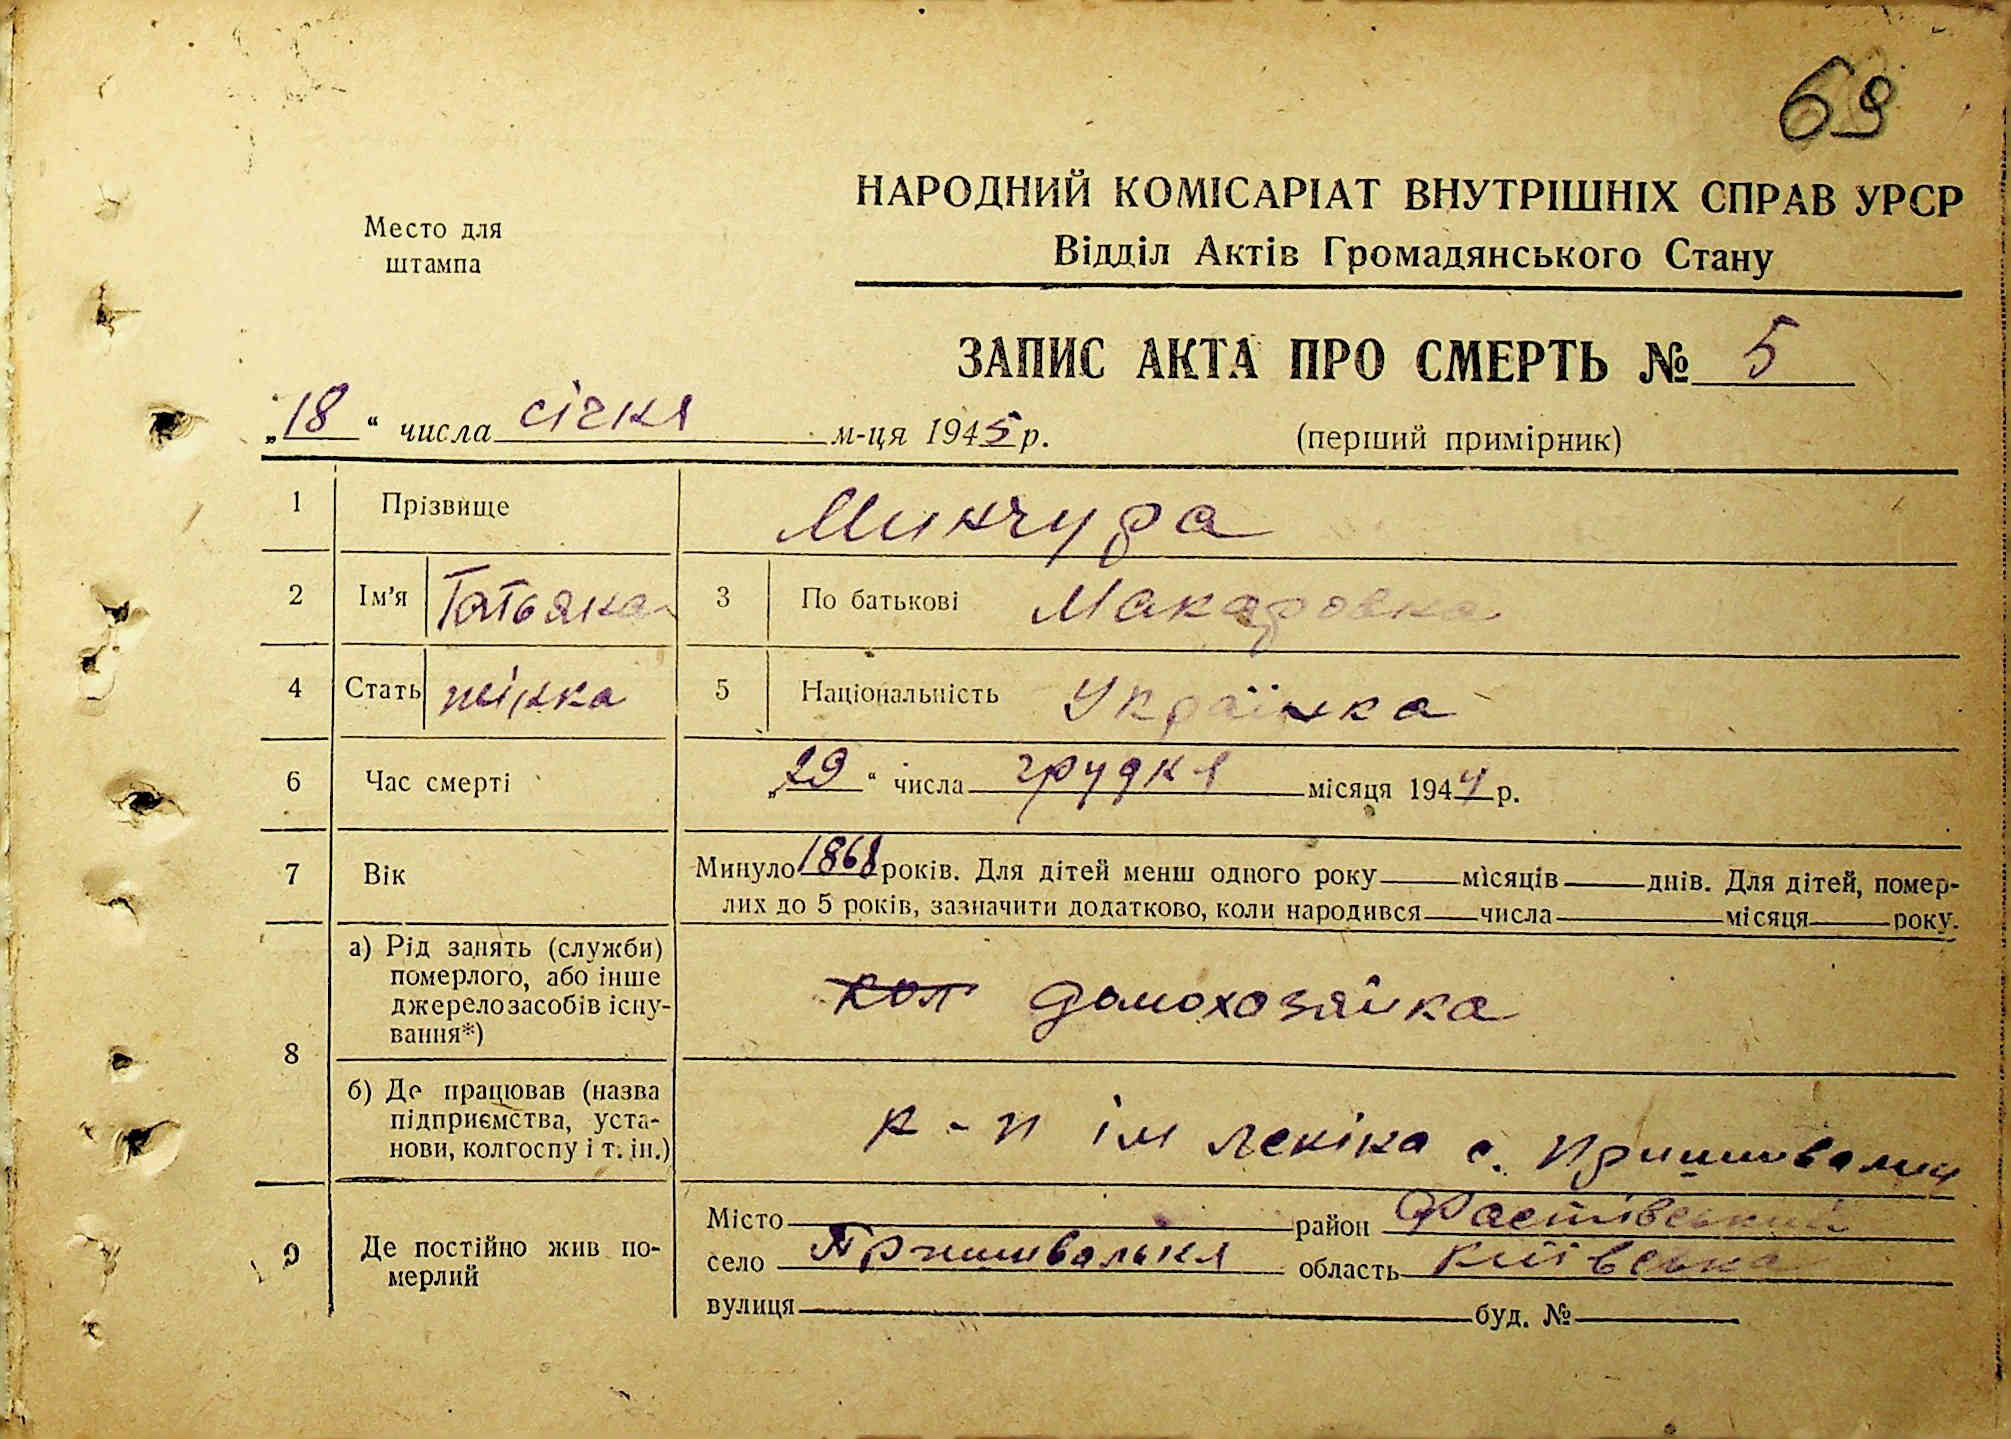 69
НАРОДНИЙ КОМІСАРІАТ ВНУТРІШНІХ СПРАВ УРСР
Место для
штампа
Відділ Актів Громадянського Стану
ЗАПИС АКТА ПРО СМЕРТЬ № 5
„18“ числа січня м-ця 1945 р.
(перший примірник)
1 Прізвище Минчура
2 Ім'я Татьяна 3 По батькові Макаровна
4 Стать жінка 5 Національність Українка
6 Час смерті „29“ числа грудня місяця 1944 р.
7 Вік Минуло 1868 років. Для дітей менш одного року місяців днів. Для дітей, помер-
лих до 5 років, зазначити додатково, коли народився числа місяця року.
8 а) Рід занять (служби)
померлого, або інше
джерело засобів існу-
вання*)
кол домохозяйка
б) Де працював (назва
підприємства, уста-
нови, колгоспу і т. ін.)
к-п ім Леніна с.
9 Де постійно жив по-
мерлий
Місто район Фастівський
село Пришивальня область київська
вулиця буд. №